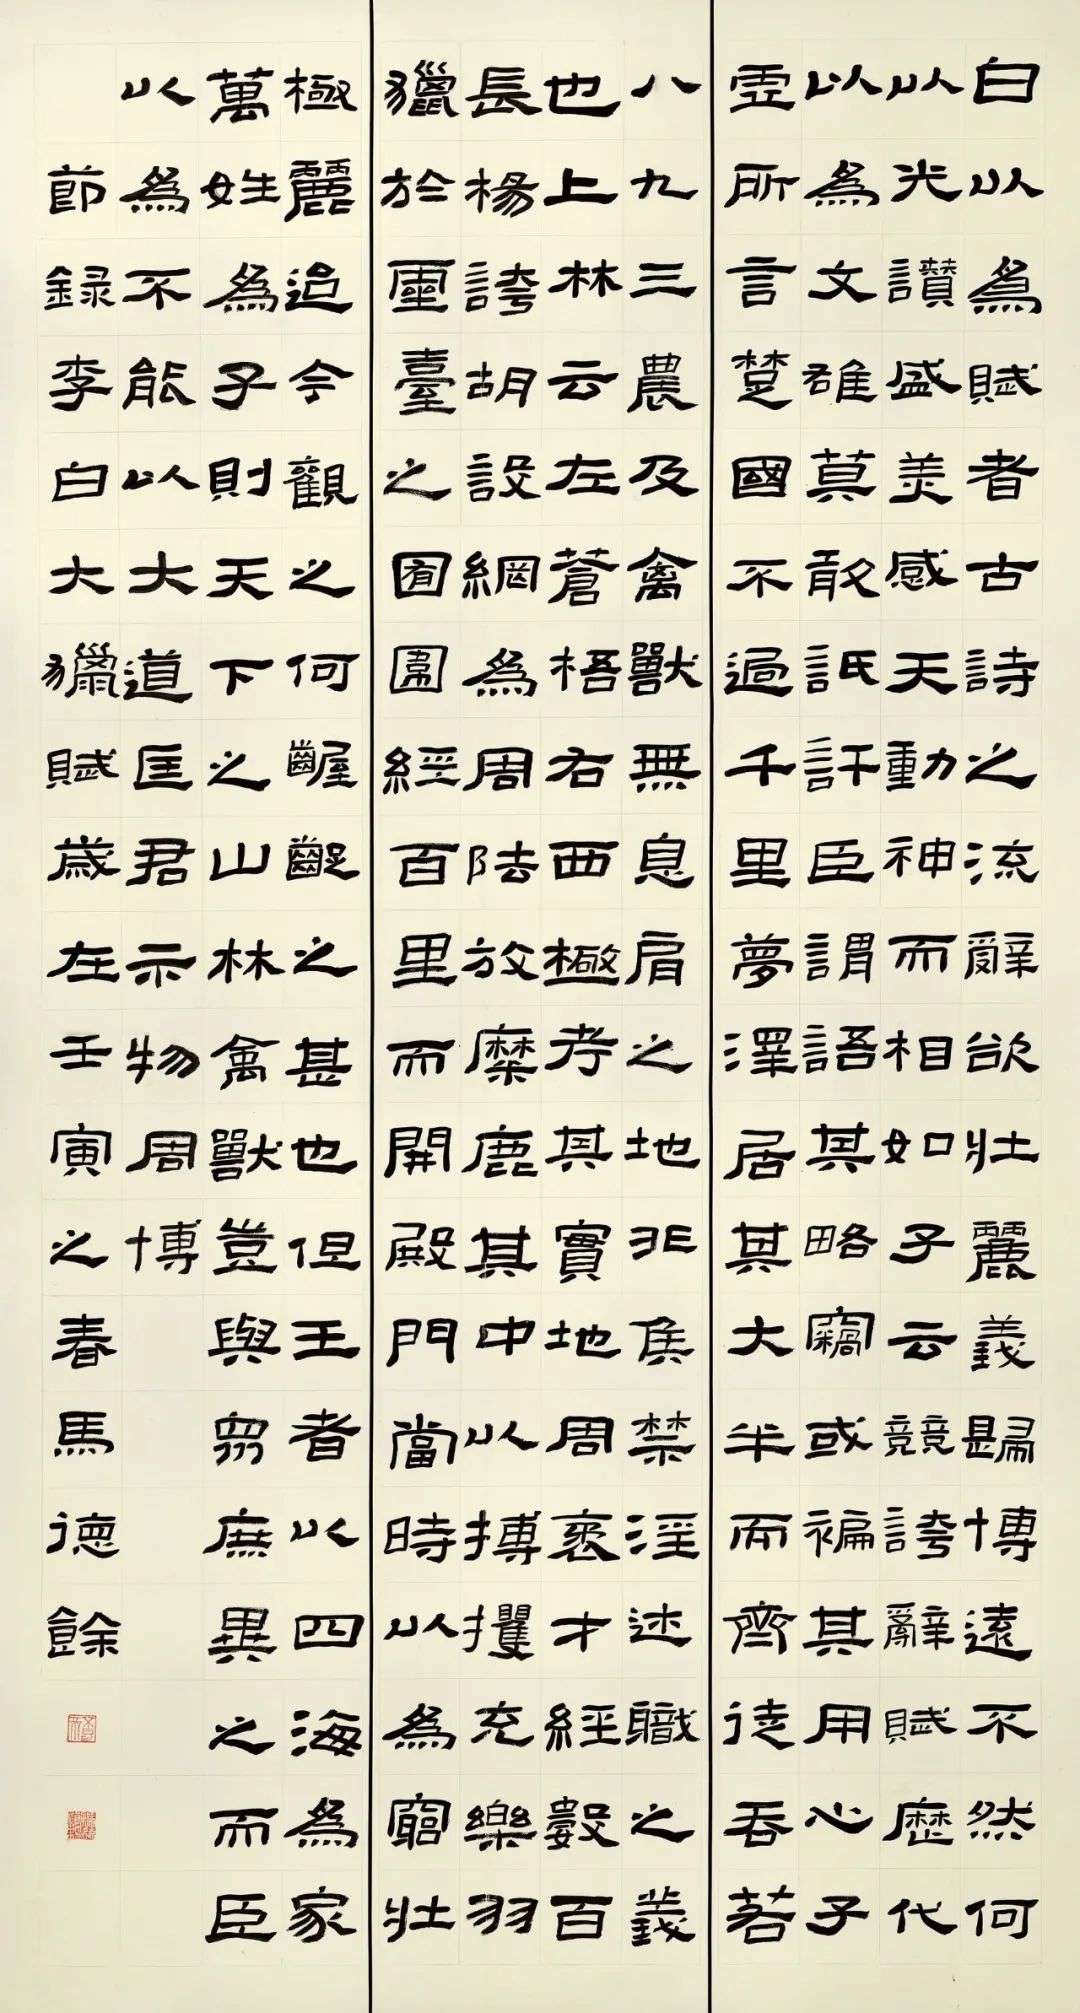 白以為賦者古詩之流辭欲壯麗義歸博遠不然何
以光讚盛美感天動神而相如子云競誇辭賦歷代
以為文雄莫敢詆訐臣謂語其略竊或褊其用心子
虛所言楚國不過千里夢澤居其大半而齊徒吞若
八九三農及禽獸無息肩之地非矦禁淫述職之義
也上林云左蒼梧右西極考其實地周袤才經數百
長楊誇胡設網為周阹放麋鹿其中以搏攫充樂羽
獵於靈臺之囿圍經百里而開殿門當時以為窮壯
極麗迨今觀之何齷齪之甚也但王者以四海為家
萬姓為子則天下之山林禽獸豈與眾庶異之而臣
以為不能以大道匡君示物周博
節錄李白大獵賦歲在壬寅之春馬德餘